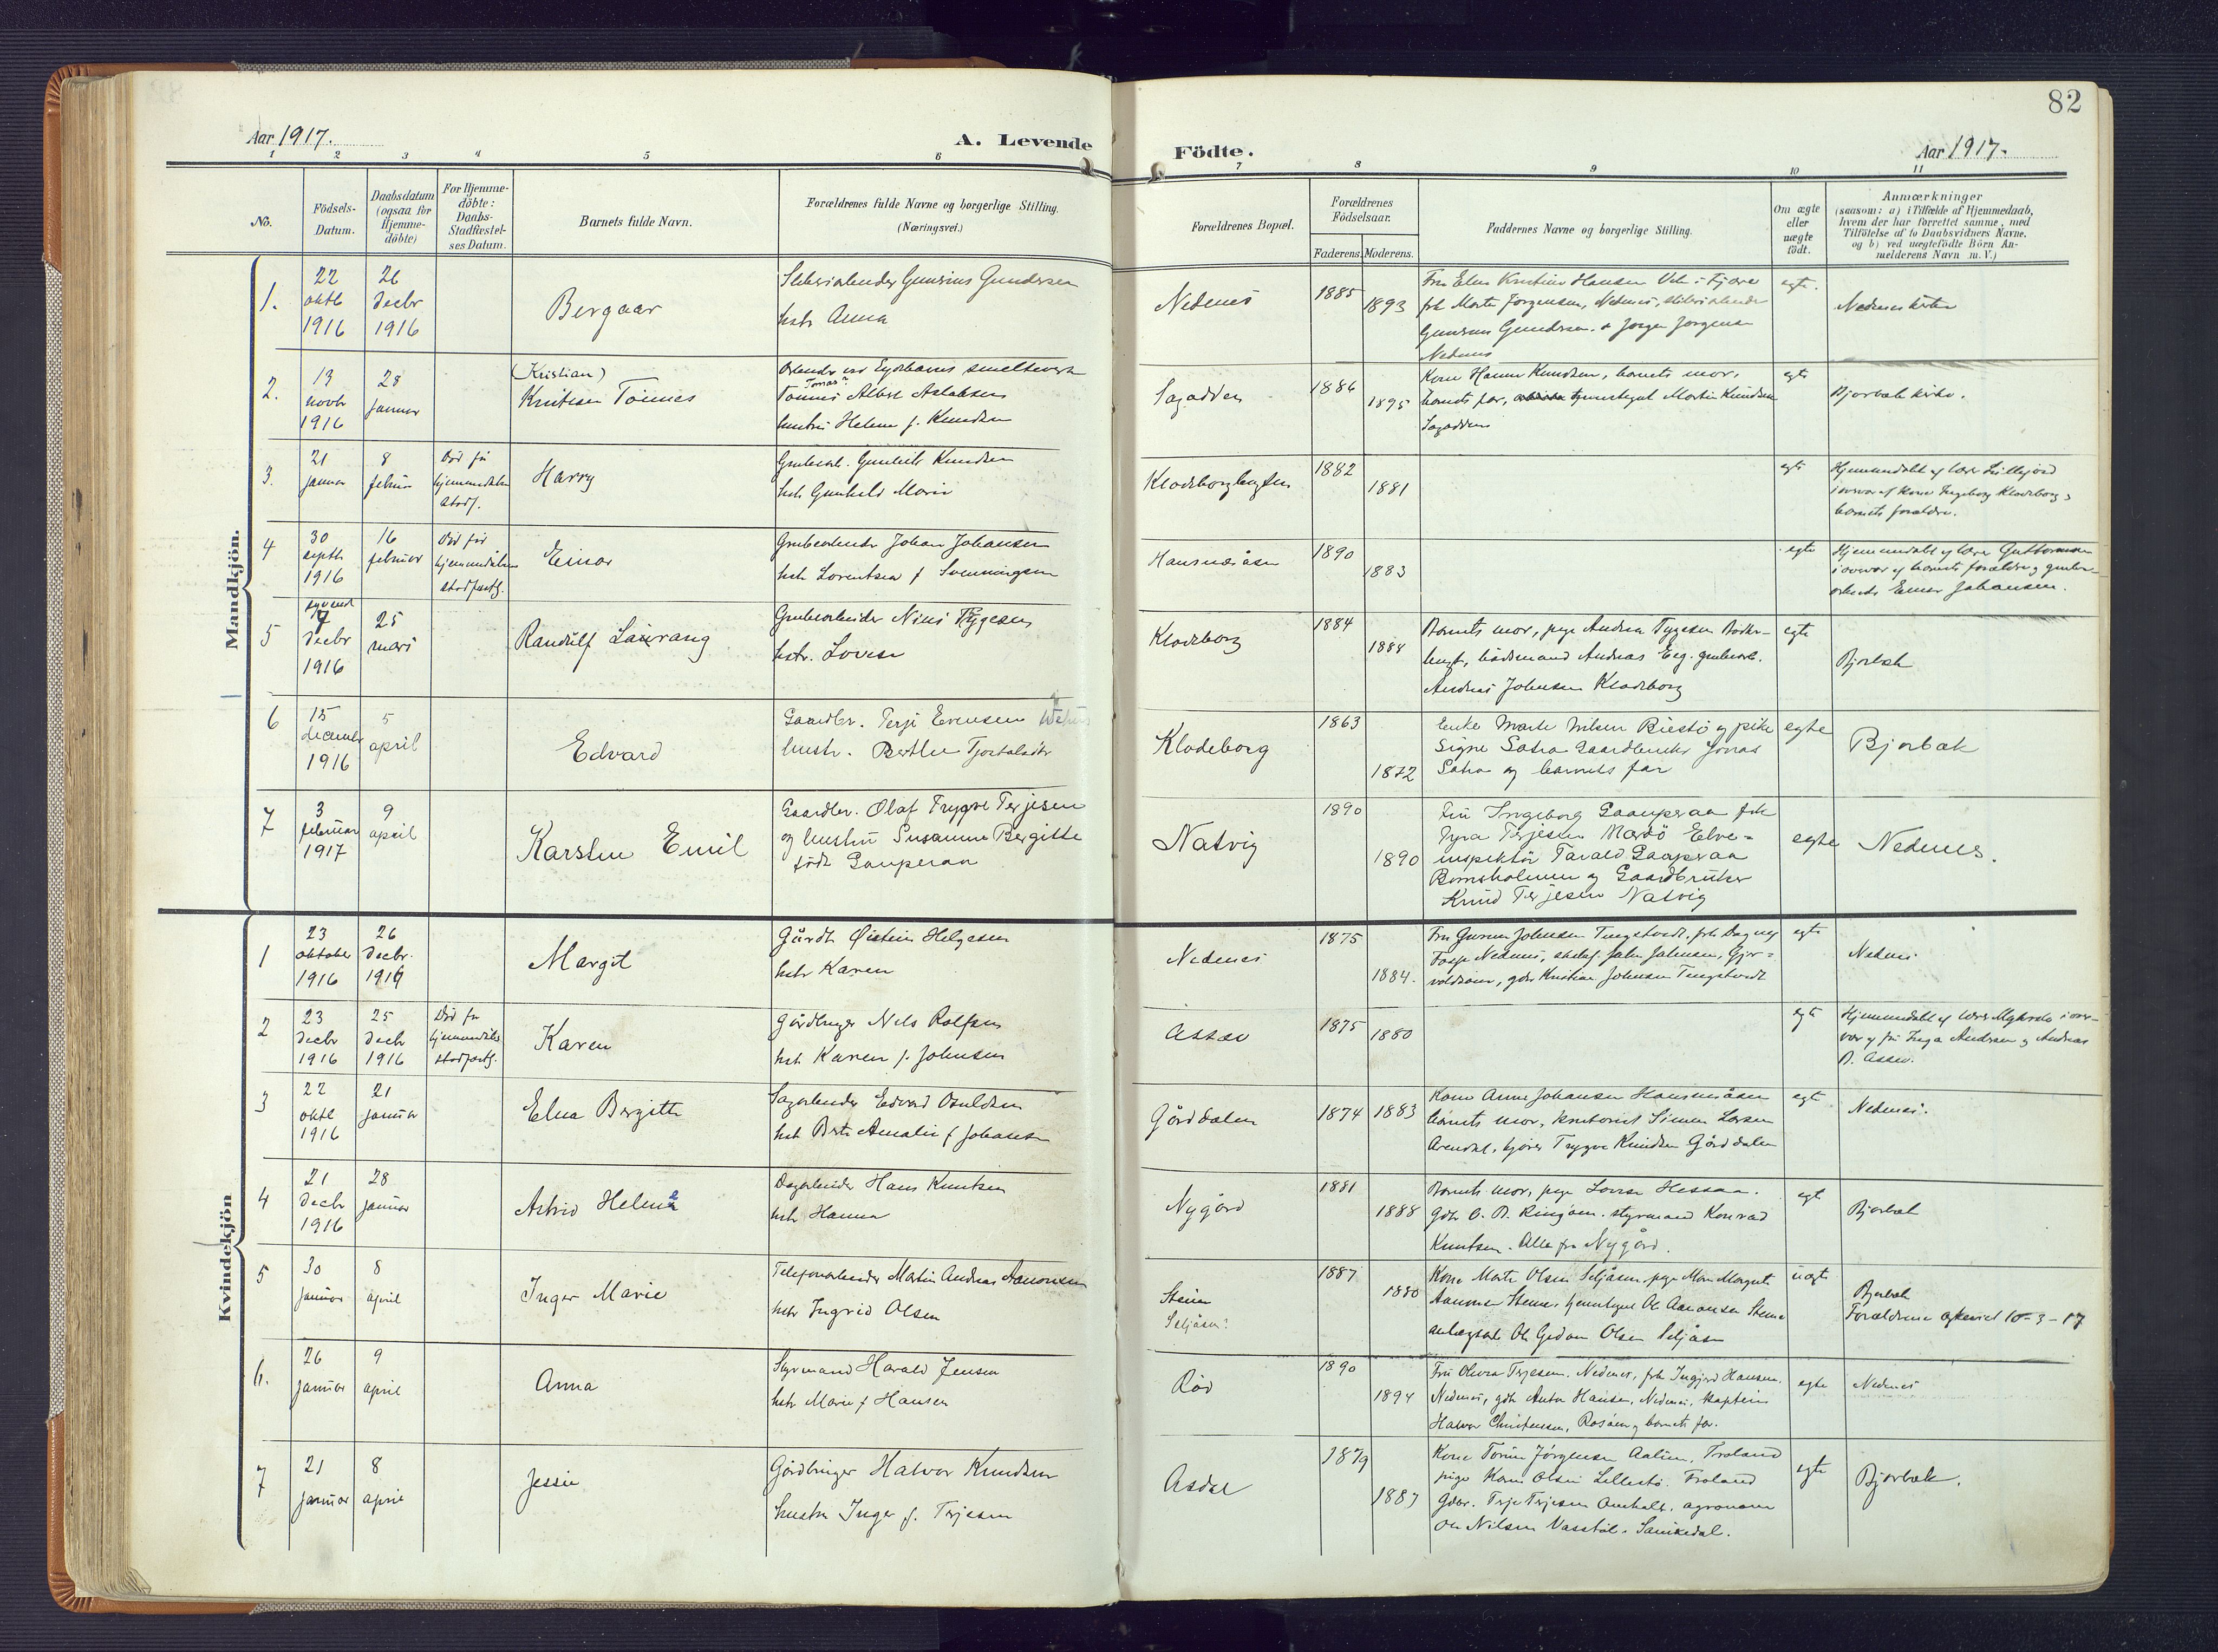 82
Aar 1917.
A. Levende
Födte.
Aar 1917.
1 2 3 4 5 6 7 8 9 10 11
No.
Födsels-
Datum.
Daabsdatum
(ogsaa for
Hjemme-
döbte)
For Hjemme-
döbte:
Daabs-
Stadfæstel-
ses Datum.
Barnets fulde Navn.
Forældrenes fulde Navne og borgerlige Stilling.
(Næringsvei.)
Forældrenes Bopæl.
Forældrenes
Födselsaar.
Faderens. Moderens.
Faddernes Navne og borgerlige Stilling.
Om ægte
eller
uægte
födt.
Anmærkninger
(saasom: a) i Tilfælde af Hjemmedaab,
hvem der har forrettet samme, med
Tilföielse af to Daabsvidners Navne,
og b) ved uægtefödte Börn An-
melderens Navn m. V.)
Mandkjön.
1.
22
oktb
1916
26
decbr
1916
Bergaar
Gunerius Gundersen
hstr Anna
Nedenes
1885
1893
Fru Elen Kristine Hansen
frk Marte Jorgensen, Nedenes,
Gundersen. & Jorgen Jorgensen
Nedenes
egte.
Nedenes kirke
2.
13
novbr
1916
28
januar
(Kristian)
Kristian Tønnes
smelteverk
Tomas
Tønnes Albert Aslaksen
hustru Helene f. Knudsen
Sagodden
1886
1895
Kone Hanne Knudsen, barnets mor,
barnets far, Martin Knudsen
Sagodden
egte
Bjorbæk kirke.
3.
21
januar
8
februar
Død før
hjemmedåben
stadf.
Harry
Grubearb. Gunhild Knudsen
hstr Gunhild Marie
1882
1881
egte
Hjemmedøbt af lærer Lillejord
i overvær af Kone Ingeborg Klodeborg &
barnets forældre.
4
30
septb
1916
16
februar
Død før
hjemmedåben
stadfestg.
Einar
Grubearbeider Johan Johansen
hstr Lorentsen f Svenningsen
Hansmesåsen
1890
1883
egte
Hjemmedøbt af lærer Guttormsen
i overvær af barnets forældre og grube-
arbeider Einar Johansen.
5
syvende
7
decbr
1916
25
mars
Randulf Laurang
Grubearbeider Nils Tygesen
hstr. Lovise
Klodeborg
1884
1884
Barnets mor, pige Andrea Tygesen
bådsmand Andreas Eeg. grubearb.
Andreas Johnsen Klodeborg
egte
Bjorbæk
6
15
decembr
1916
5
april
Edvard
Gaardbr. Terje Evensen
hustr. Berthe
Klodeborg
1863
1872
Enke Marte Nilsen Biestø og pike
Signe Satra Gaardbruker Jonas
Satra og barnets far
egte
Bjorbæk
7
3
februar
1917
9
april
Karsten Emil
Gaardbr. Olaf Trygve Terjesen
og hustru Susanne Bergitte
født Gauperaa
Natvig
1890
1890
Fru Ingeborg Gauperaa frk
Terjesen Mærdö Elve-
inspektør Tarald Gauperaa
Bomsholmen og Gaardbruker
Knud Terjesen Natvig
egte
Nedenes.
Kvindekjön
1
23
oktober
1916
26
decbr.
1916
Margit
Gårdb Øistein Helgesen
hstr Karen
Nedenes
1875
1884.
Fru Gurine Johnsen Tingstvedt, frk Dagny
Nedenes, John Johnsen,
gdbr Kristian Johnsen Tingstvedt
egte
Nedenes
2
23
decbr
1916
25
decb
1916
Død før
hjemmedåbs
stadfestg.
Karen
Gårdbruger Nils Rolfsen
hstr Karen f. Johnsen
Assev
1875
1880
egte
Hjemmedøbt af lærer i over-
vær af fru Inga Andersen og Andreas
Assev.
3
22
oktb
1916
21
januar
Elna Bergitte
Sagarbeider Edvard Osuldsen
hstr Berte Amalie f Johansen
Gårddalen
1874
1883
Kone Anne Johansen Hansmesåsen
barnets mor, kontorist Simen Larsen
Arendal, kjører Trygve Knudsen Gårddalen
egte
Nedenes.
4
21
decbr
1916
28
januar
Astrid Helene
Dagarbeider Hans Knutsen
hstr Hanna
Nygård
1881
1888
Barnets mor, pige Lovise Hessaa.
Gdbr styrmand Konrad
Knutsen. Alle fra Nygård.
egte
Bjorbæk
5
30
januar
8
april
Inger Marie
Telefonarbeider Martin Andreas Aanonsen
hstr Ingrid Olsen
Steine
Seljåsen:
1887
1880
Kone Marte Olsen Seljåsen pige Mari Margrete
Aanonsen Steine, Ole Aanonsen Steine
anlægsarb Ole Gideon Olsen Seljåsen
uægte
Bjorbæk
Forældrene egteviet 10-3-17
6.
26
januar
9
april
Anna
Styrmand Harald Jensen
hstr Marie f Hansen
Rød
1890
1894
Fru Olava Terjesen. Nedenes, frk Ingjerd Hansen.
Nedenes, gdbr Anton Hansen, Nedenes, kaptein
Halvor Christensen, og barnets far.
egte
Nedenes
7
21
januar
8
april
Jessie
Gårdbruger Halvor Knudsen
hustru Inger f. Terjesen
Asdal
1879
1887
Kone Torine Jörgensen Froland
pige Karen Olsen Lillestø. Froland
Gdbr. Terje Terjesen agronom
Ole Nilsen Vasstøl.
egte
Bjorbæk.